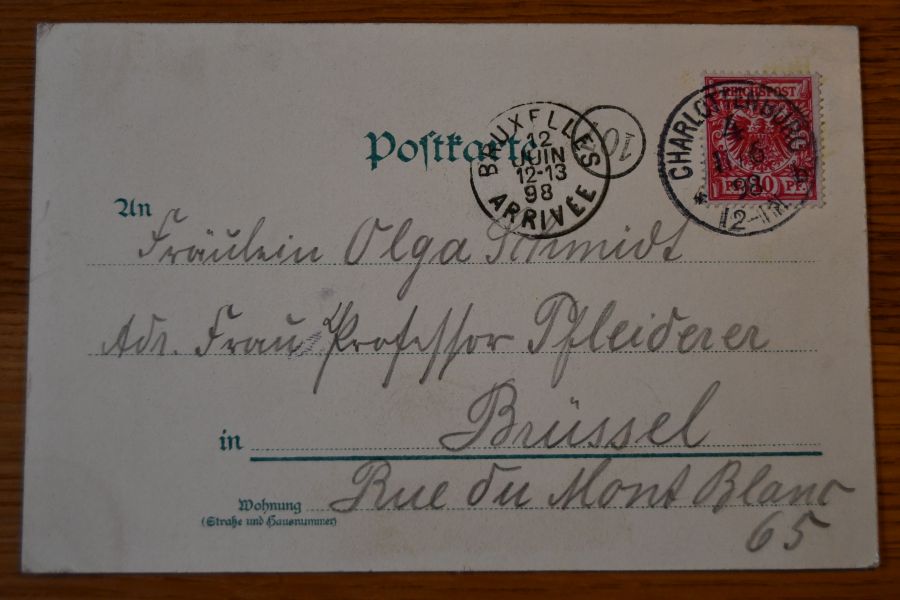 Postkarte
BRUXELLES
12
JUIN
12-13
98
ARRIVÉE
10
REICHSPOST
10 PF.
CHARLOTTENBURG
4
11 6
98
12-1N.
An
Fräulein Olga Schmidt
Adr. Frau Professor Pfleiderer
in Brüssel
Wohnung Rue du Mont Blanc
(Straße und Hausnummer)
65